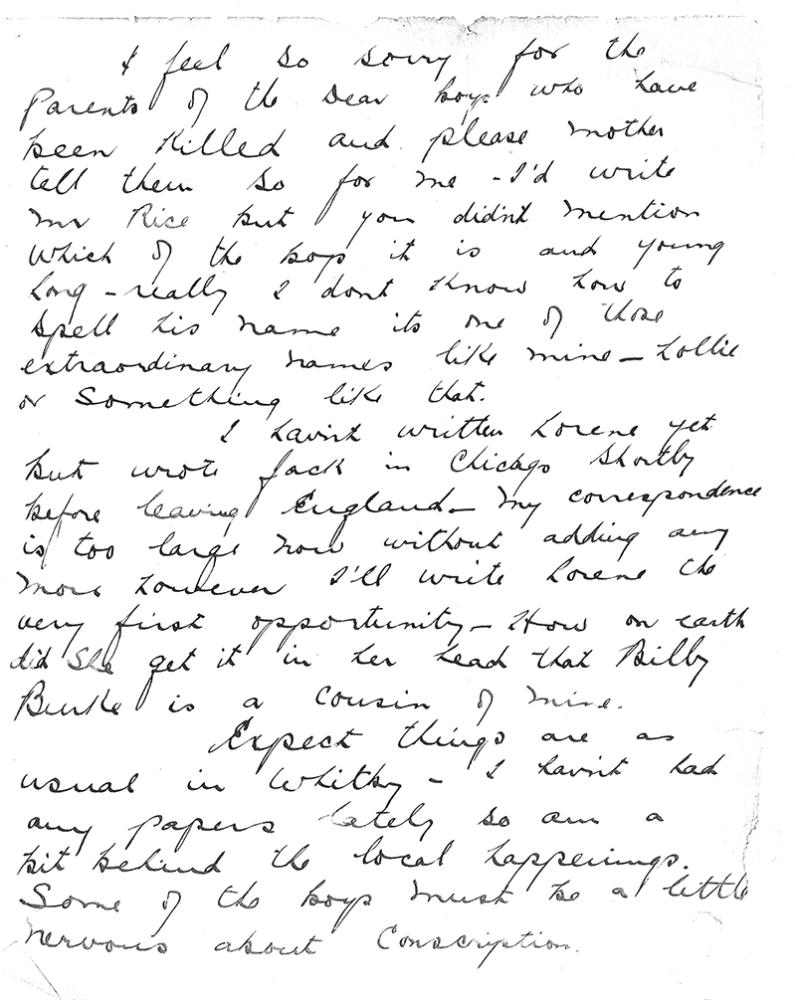 I feel so sorry for the
Parents of the Dear boys who have
been Killed and please Mother
tell them so for me - I'd write
Mr Rice but you didn't mention
Which of the boys it is and young
Long - really I dont Know how to
Spell his name its one of those
extraordinary names like mine - Lollie
or Something like that.
I havn't written Lorene yet
but wrote Jack in Chicago Shortly
before leaving England - My correspondence
is too large now without adding any
more however I'll write Lorene the
very first opportunity - How on earth
did She get it in her head that Billy
Burke is a Cousin of mine.
Expect things are as
usual in Whitby - I havn't had
any papers lately so am a
bit behind the local happenings.
Some of the boys must be a little
nervous about Conscription.